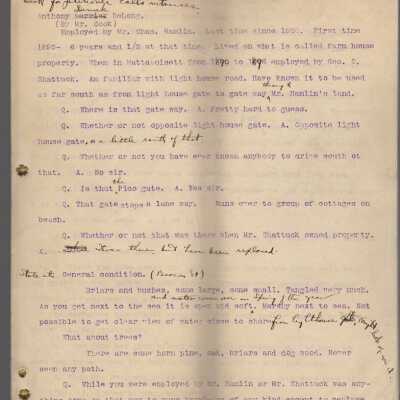 Anthony Bedeng.
(By Mr. Cook)
Employed by Mr. Chas. Hamlin. Last time since 1900. First time
1890- 6 years and 1/2 at that time. Lived on what is called farm house
property. When in Mattapoisett from 1890 to 1896 employed by Geo. C.
Shattuck. Am familiar with light house road. Have known it to be used
as far south as from light house gate to gate way Mr. Hamlin's land.
Q. Where is that gate way. A. Pretty hard to guess.
Q. Whether or not opposite light house gate. A. Opposite light
house gate, or a little south of that.
Q. Whether or not you have ever known anybody to drive south of
that. A. No sir.
Q. Is that the Pico gate. A. Yes sir.
Q. That gate stops a lane way. Runs over to group of cottages on
beach.
Q. Whether or not that was there when Mr. Shattuck owned property.
A. It was there but have been replaced.
State it General condition.
Briars and bushes, some large, some small. Tangled very much.
and water runs over in Spring of the year
As you get next to the sea it is open and soft. Marshy next to sea. Not
possible to get clear view of water close to shore from lighthouse
What about trees?
There are some horn pine, oak, briars and dog wood. Never
seen any path.
Q. While you were employed by Mr. Hamlin or Mr. Shattuck was any-